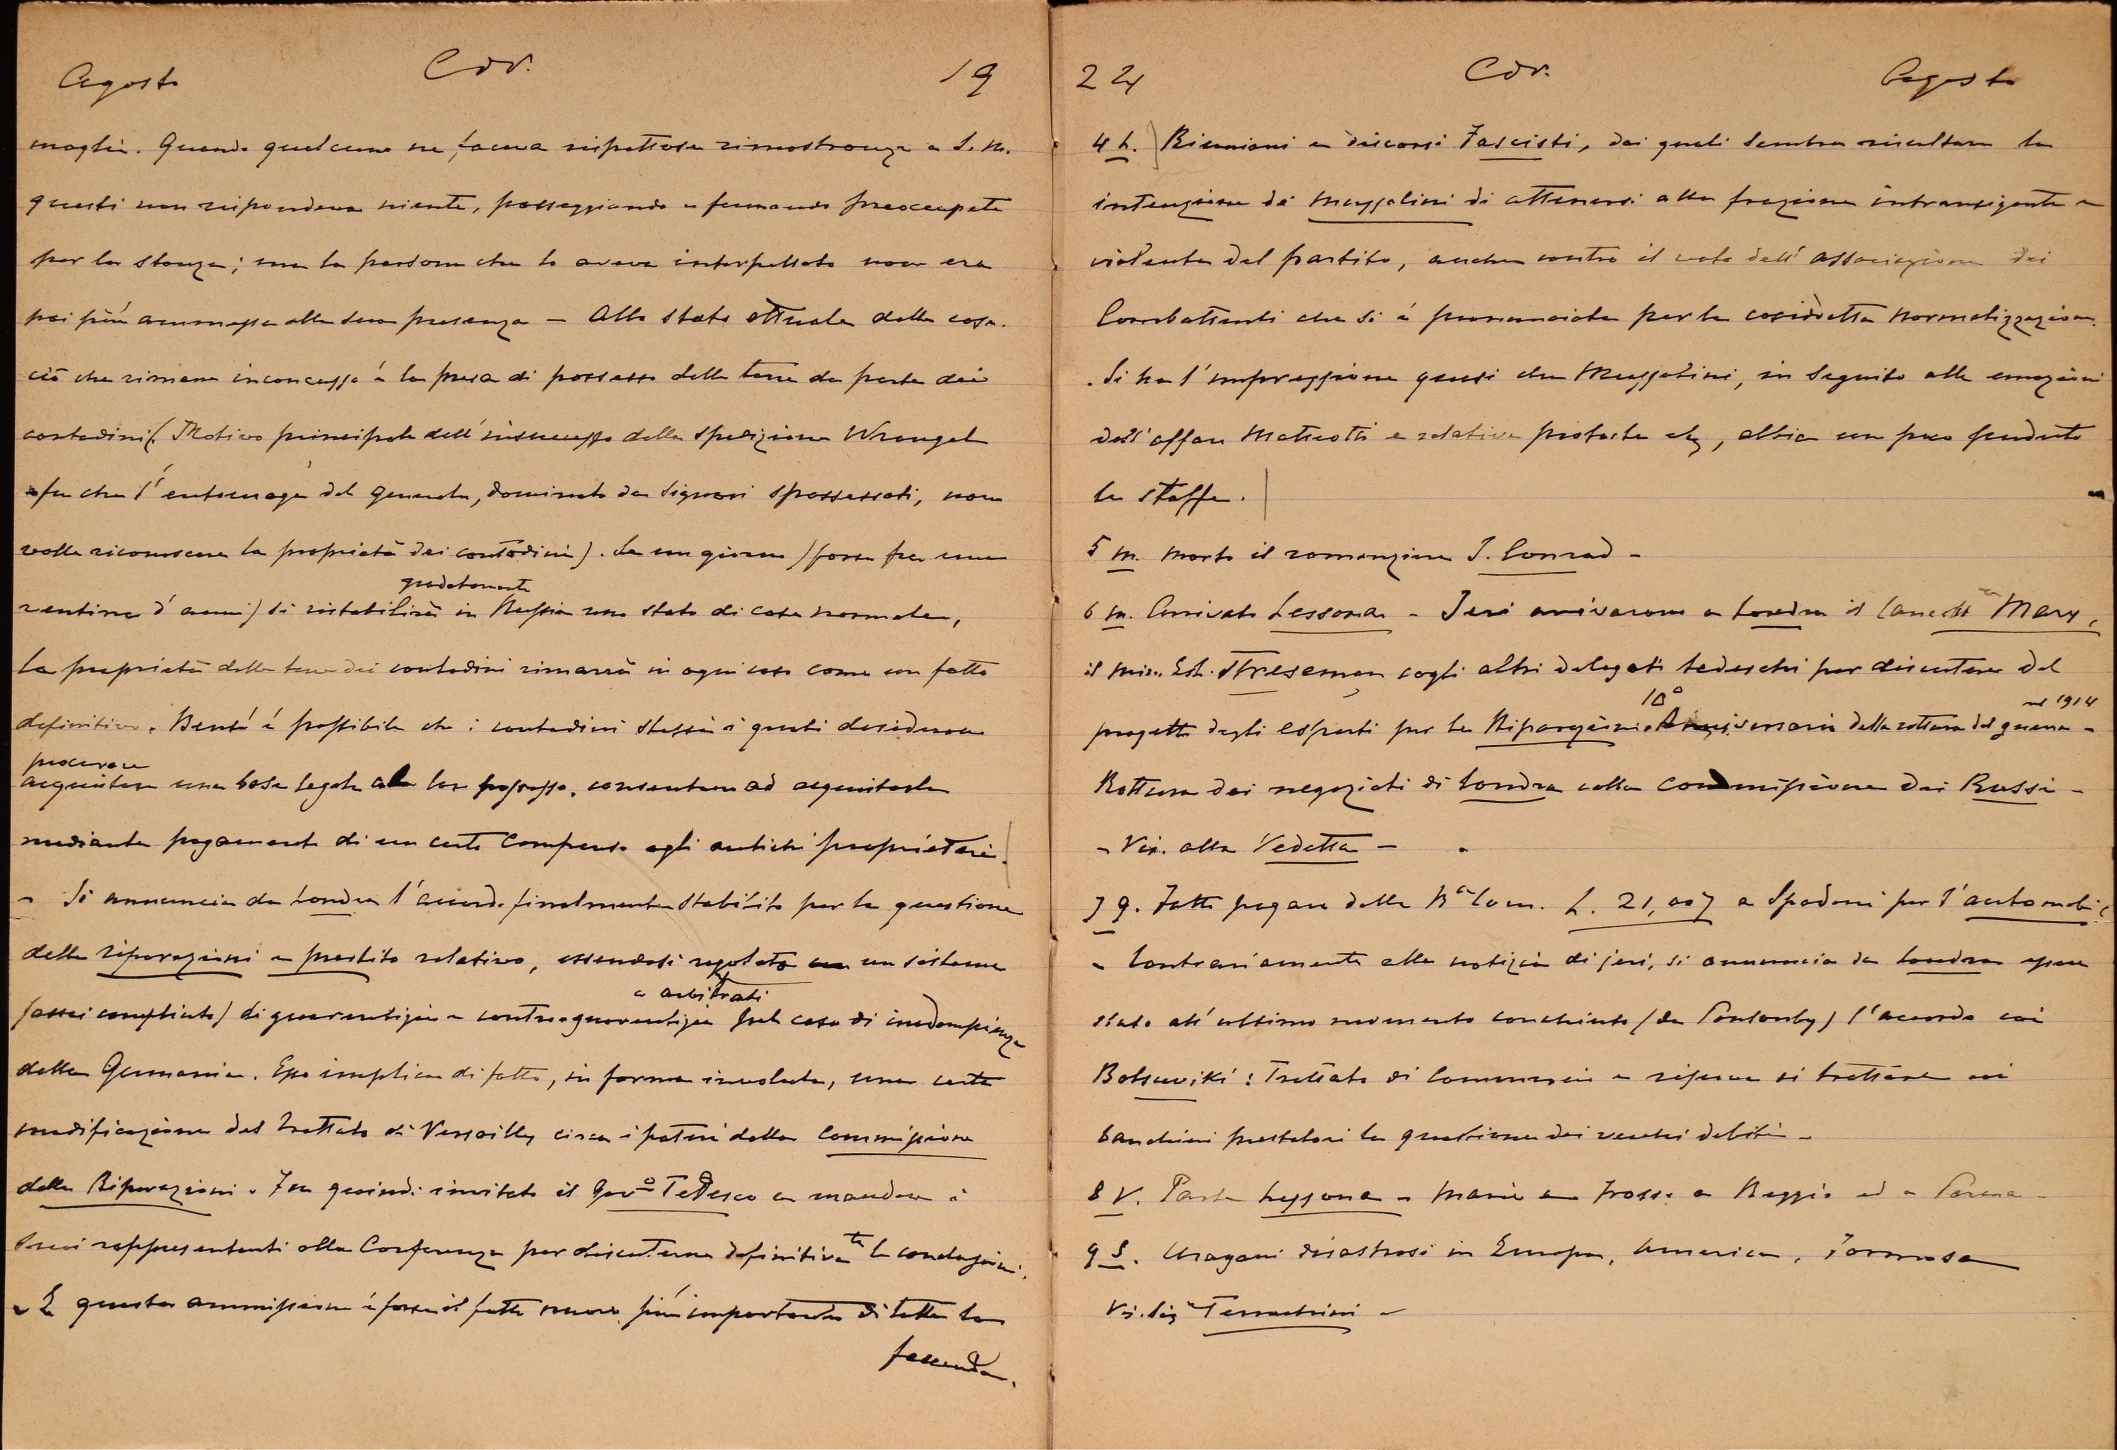 Agosto Cav. 19
moglie. Quando qualcuno ne faceva rispettose rimostranze a S. M.
questi non rispondeva niente, passeggiando e fumando preoccupato
per la stanza; ma la persona che lo aveva interpellato non era
poi più ammessa alla sua presenza — Allo stato attuale delle cose.
ciò che rimane inconcusso è la presa di possesso delle terre da parte dei
contadini (Motivo principale dell'insuccesso della spedizione Wrangel
fu che l'entourage del generale, dominato da signori spossessati, non
volle riconoscere la proprietà dei contadini). Se un giorno (forse fra una
gradatamente
ventina d'anni) si ristabilirà in Russia uno stato di cose normale,
la proprietà delle terre dei contadini rimarrà in ogni caso come un fatto
definitivo. Bensì è possibile che i contadini stessi i quali desiderano
procurare
acquistare una base legale al lor possesso, consentano ad acquistarla
mediante pagamento di un certo compenso agli antichi proprietari.
- Si annuncia da Londra l'accordo finalmente stabilito per la questione
delle riparazioni e prestito relativo, essendosi regolato un sistema
e arbitrati
(assai complicato) di guarentigie e controguarentigie pel caso di inadempienza
della Germania. Esso implica di fatto, in forma involuta, una certa
modificazione del trattato di Versailles circa i poteri della Commissione
delle Riparazioni. Fu quindi invitato il Gov.o Tedesco a mandare i
suoi rappresentanti alla Conferenza per discuterne definitivate le conclusioni.
- E questa ammissione è forse il fatto nuovo più importante di tutta la
faccenda.
24 Cav. Agosto
4 L. Riunioni e discorsi Fascisti, dai quali sembra risultare la
intenzione di Mussolini di attenersi alla frazione intransigente e
violenta del partito, anche contro il voto dell'associazione dei
Combattenti che si è pronunciata per la cosiddetta normalizzazione.
Si ha l'impressione quasi che Mussolini, in seguito alle emozioni
dell'affare Matteotti e relative proteste etc, abbia un poco perduto
le staffe.
5 M. Morto il romanziere J. Conrad -
6 M. Arrivato Lessona - Jeri arrivarono a Londra il Canc. Marx,
il Min. Est. Streseman cogli altri delegati tedeschi per discutere del
10° nel 1914
progetto degli esperti per le Riparazioni. Anniversario della rottura del guerra -
Rottura dei negoziati di Londra colla commissione dei Russi -
- Vis. alla Vedetta -
7 g. Fatto pagare dalla Bca Com. L. 21,007 a Spadoni per l'automobile
- Contrariamente alla notizia di jeri, si annuncia da Londra essere
stato all'ultimo momento conchiuso (da Ponsonby) l'accordo coi
Bolsceviki: Trattato di Commercio e riserva di trattare coi
banchieri prestatori la questione dei vecchi debiti -
8 V. Parte Lessona - Maria a Reggio ed a Parma -
9 S. Uragani disastrosi in Europa, America, Formosa
Vi. Sig. Terrachini -